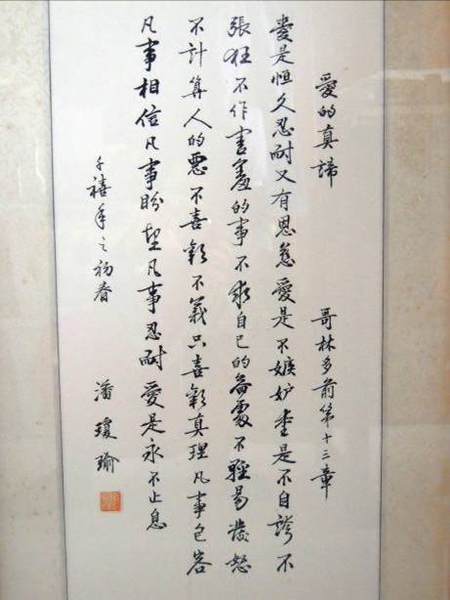 愛的真諦 哥林多前第十三章
愛是恒久忍耐又有恩慈愛是不嫉妒愛是不自誇不
張狂不作害羞的事不求自己的益處不輕易發怒
不計算人的惡不喜歡不義只喜歡真理凡事包容
凡事相信凡事盼望凡事忍耐愛是永不止息
千禧年之初春 潘瓊瑜